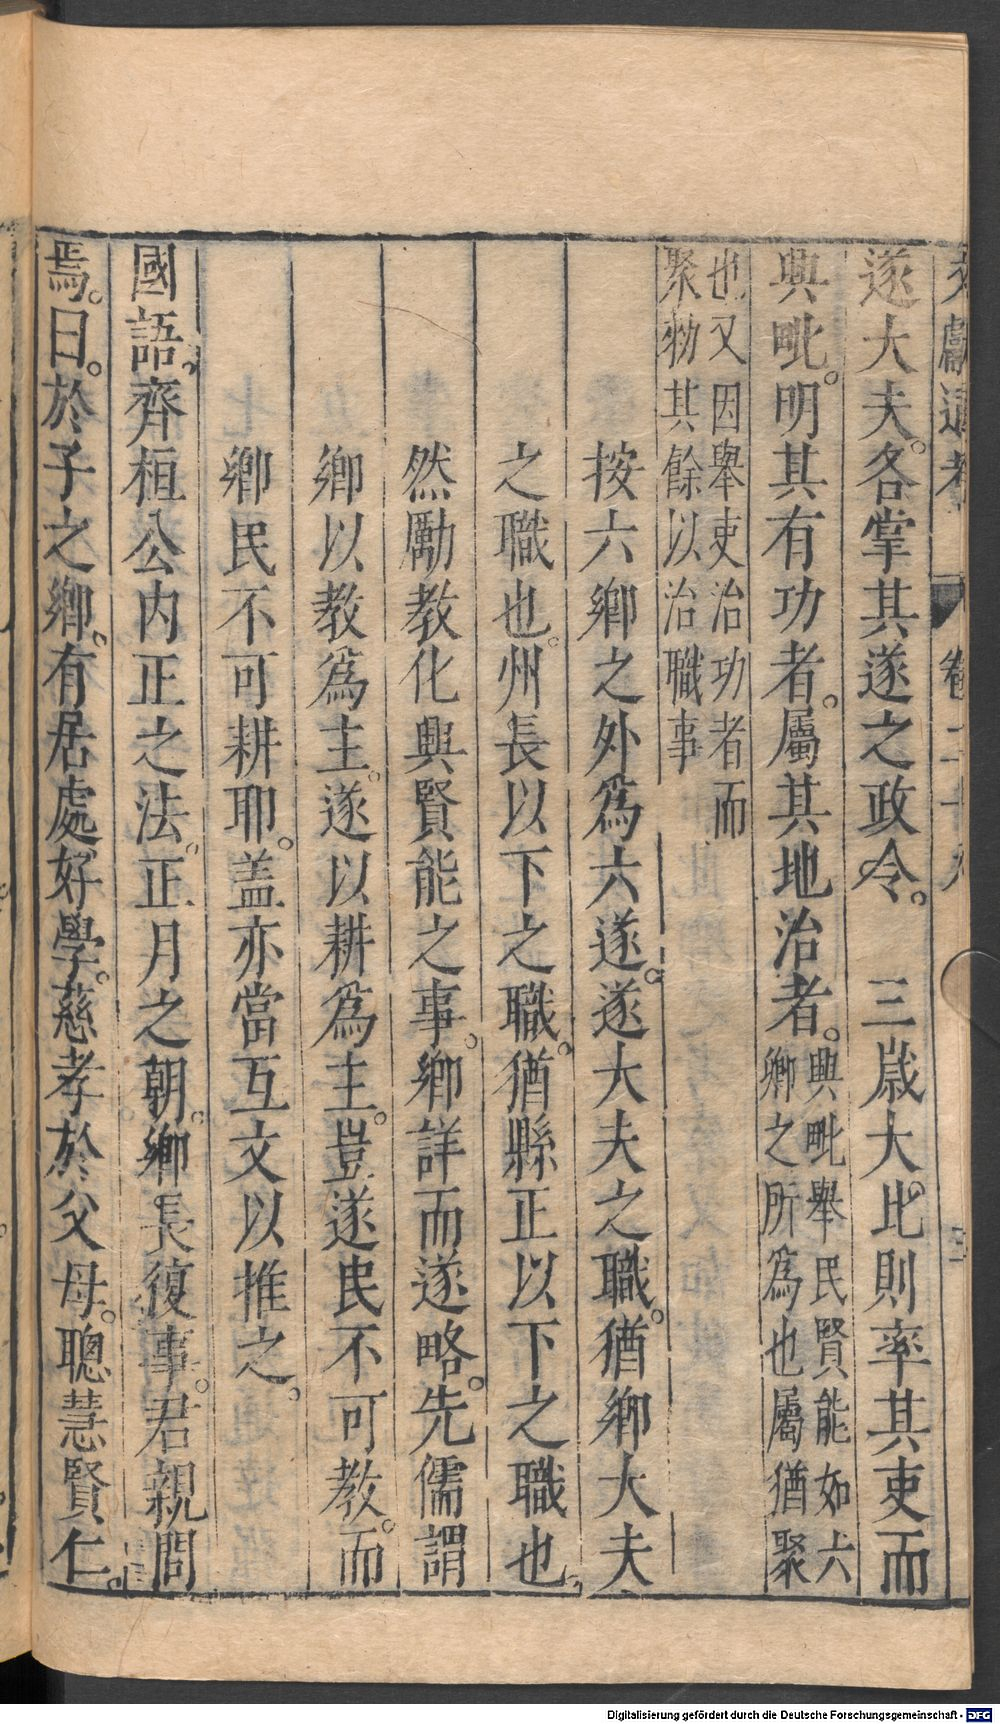 文獻通考 卷二十八
遂大夫。各掌其遂之政令。 三歲大比。則率其吏而
興甿。明其有功者。屬其地治者。興甿舉民賢能如六
鄉之所爲也屬猶聚
也又因舉吏治功者而
聚勑其餘以治職事
按六鄉之外爲六遂。遂大夫之職。猶鄉大夫
之職也。州長以下之職。猶縣正以下之職也。
然勵教化興賢能之事。鄉詳而遂略。先儒謂
鄉以教爲主。遂以耕爲主。豈遂民不可教。而
鄉民不可耕耶。盖亦當互文以推之。
國語。齊桓公内正之法。正月之朝。鄉長復事。君親問
焉。曰。於子之鄉。有居處好學。慈孝於父母。聰慧賢仁。
Digitalisierung gefördert durch die Deutsche Forschungsgemeinschaft - DFG